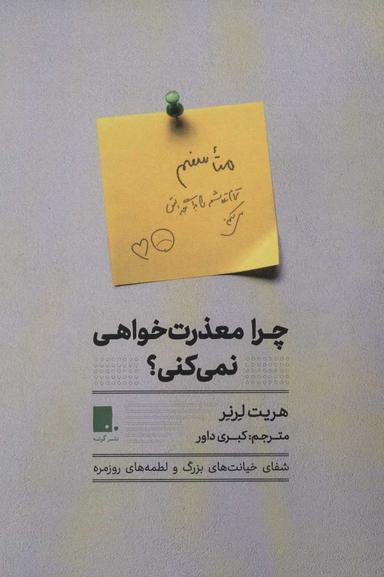 متأسفم
چرا معذرت‌خواهی
نمی‌کنی؟
هریت لِرنِر
مترجم: کبری داور
نشر گوشه
شفای خیانت‌های بزرگ و لطمه‌های روزمره